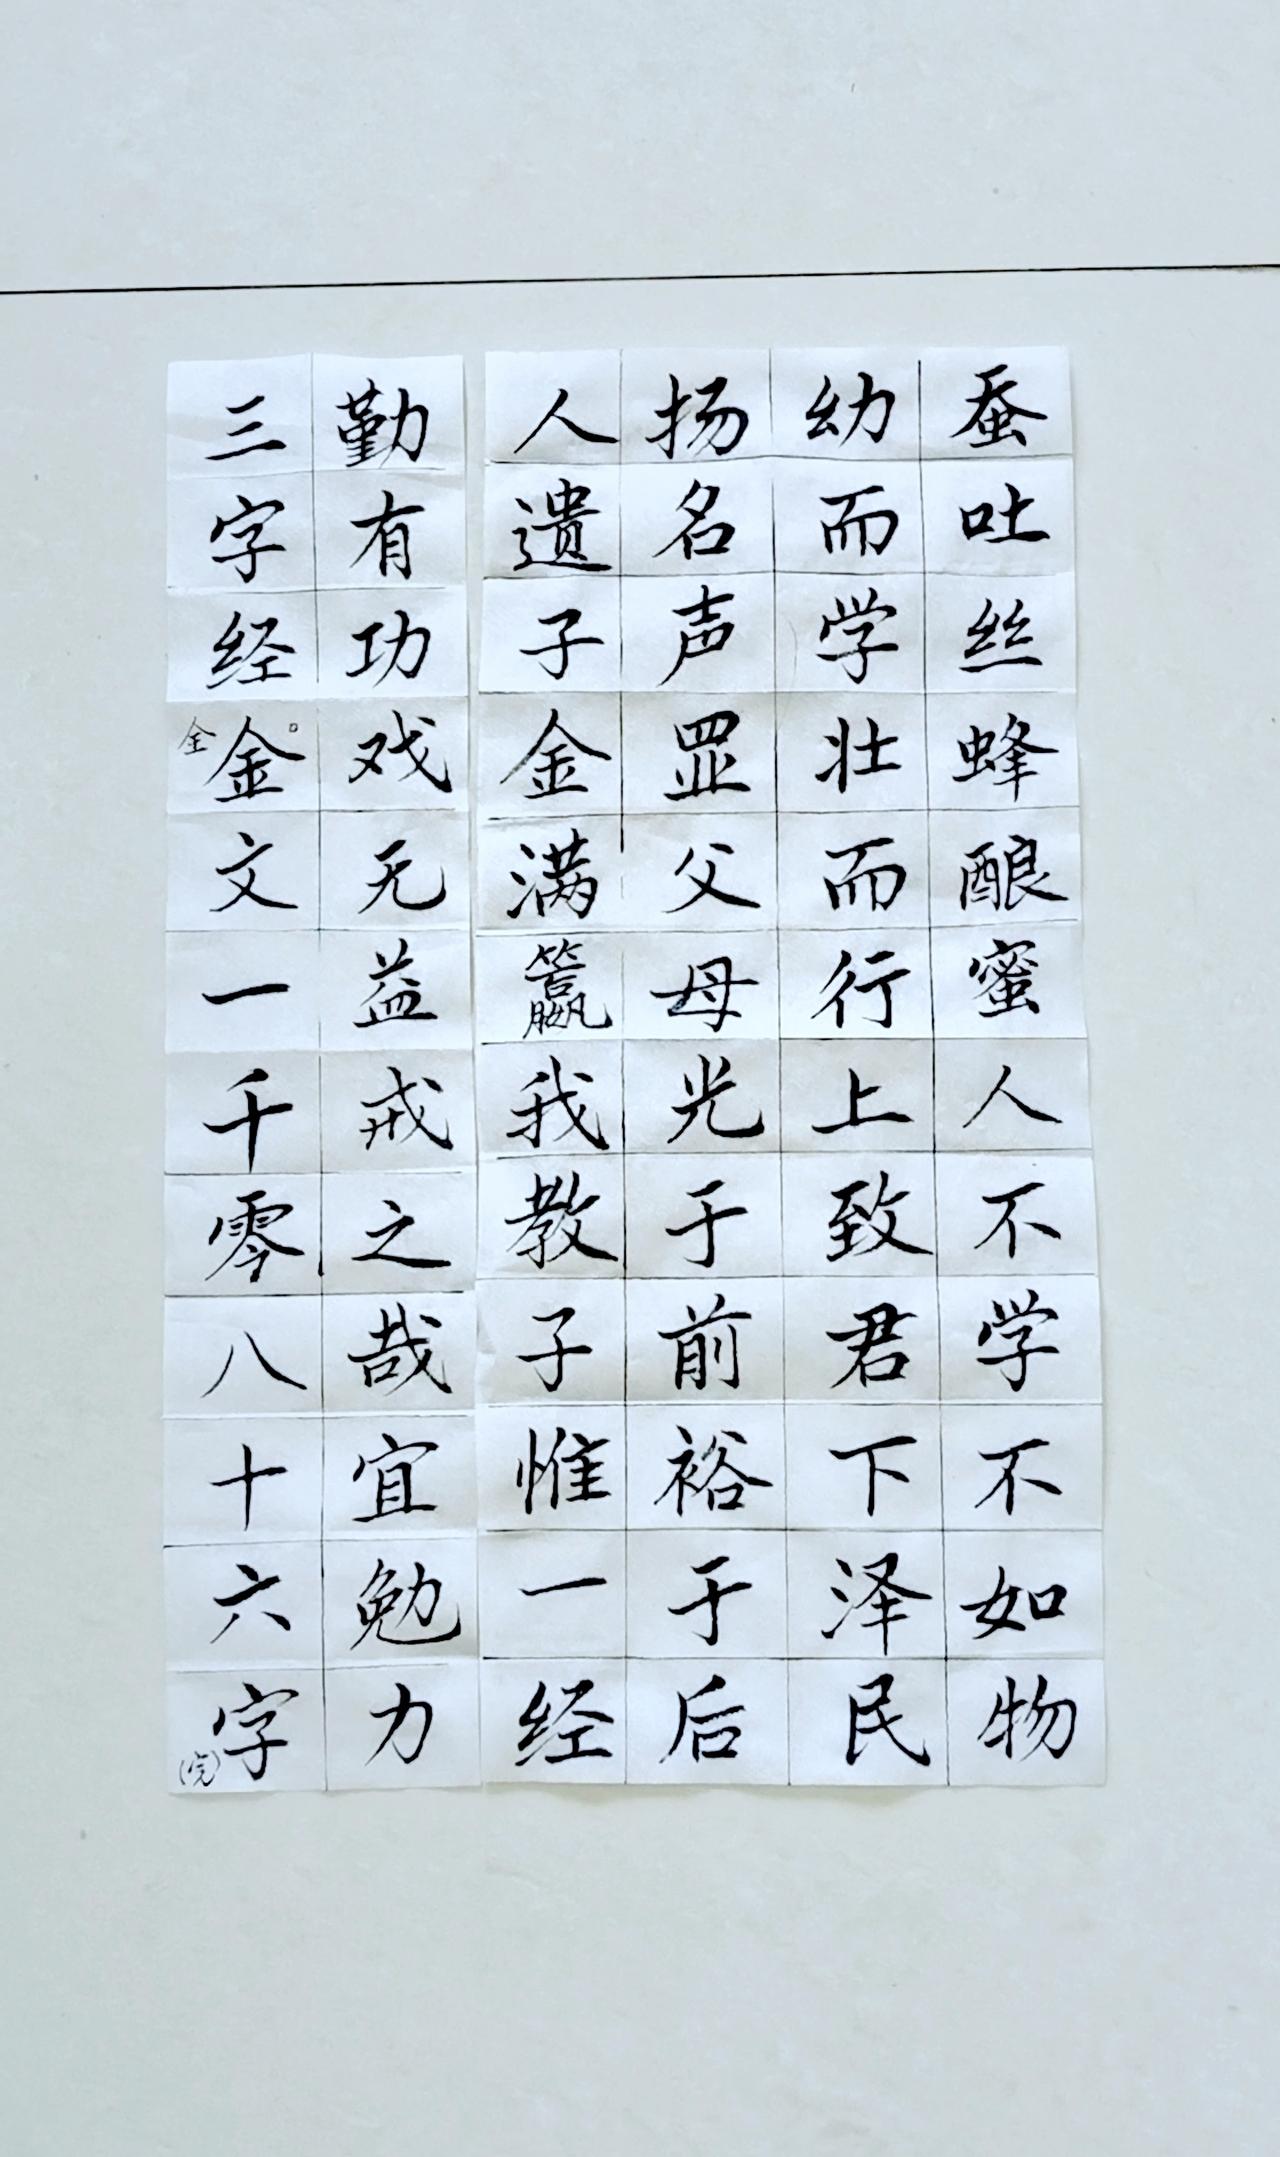 蚕吐丝蜂酿蜜人不学不如物
幼而学壮而行上致君下泽民
扬名声罡父母光于前裕于后
人遗子金满籯我教子惟一经
勤有功戏无益戒之哉宜勉力
三字经金文一千零八十六字
全
(完)